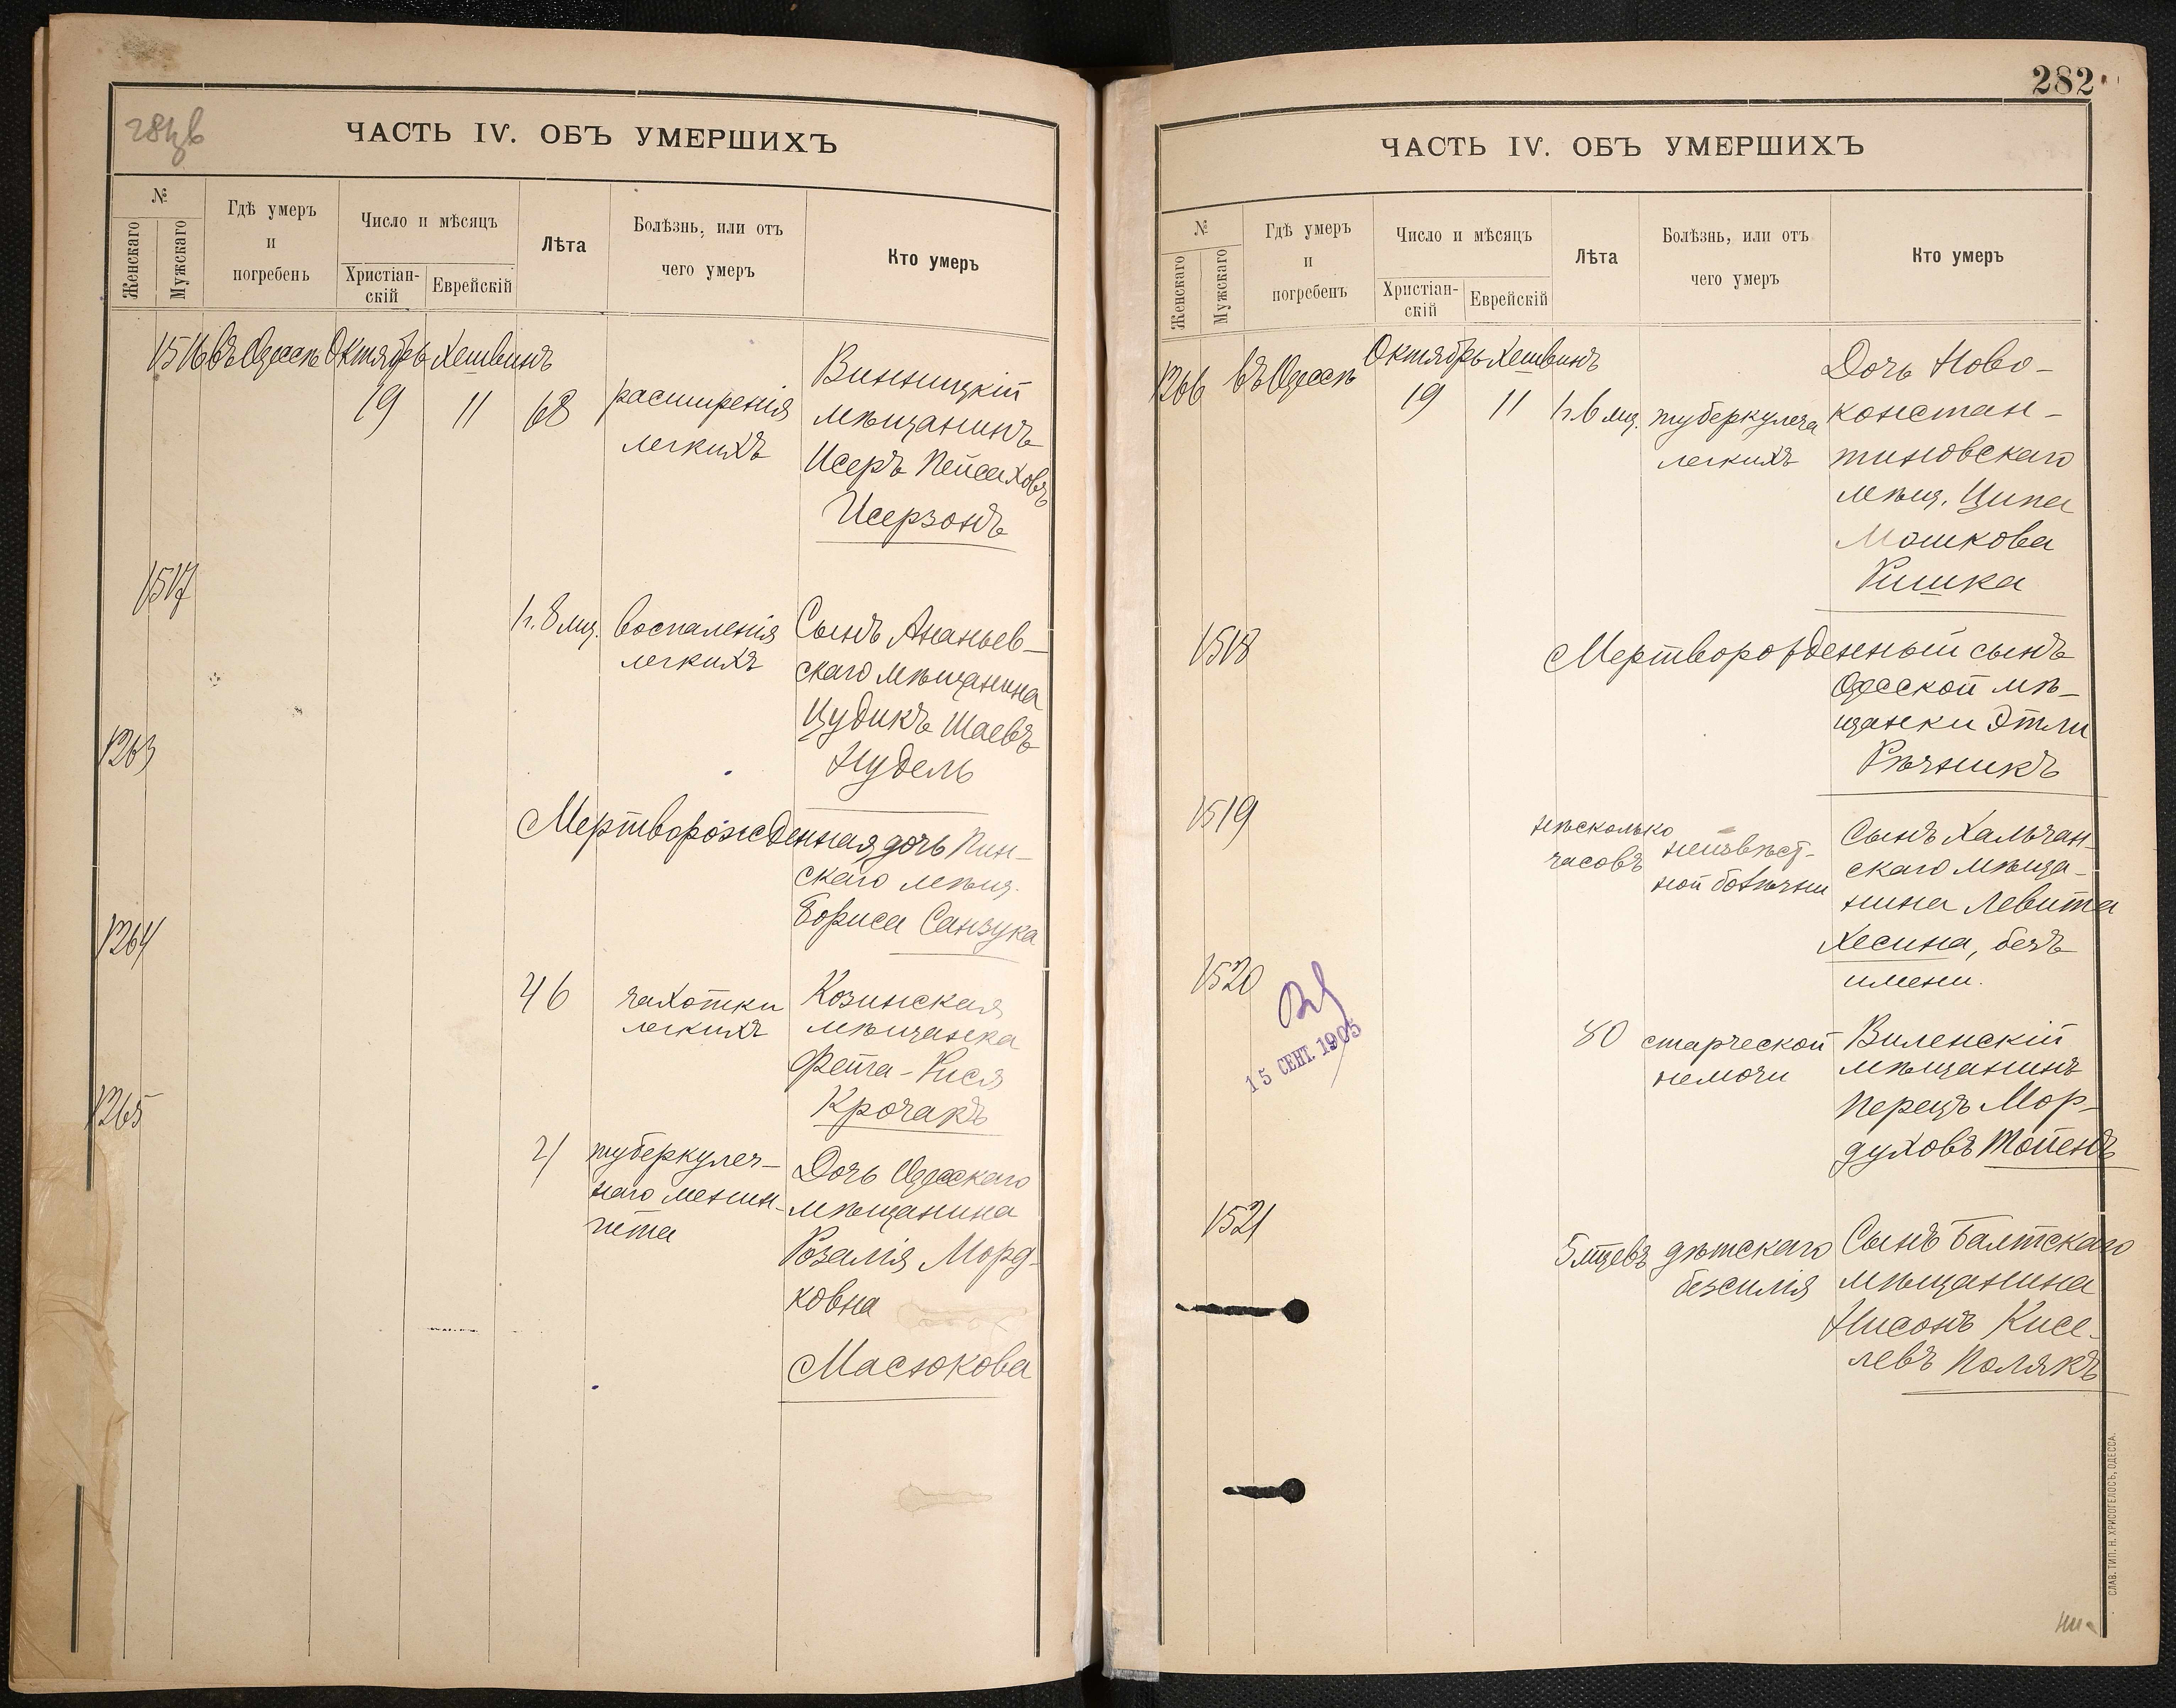 ЧАСТЬ IV. ОБЪ УМЕРШИХЪ
№
Женскаго
Мужскаго
Гдѣ умеръ
и
погребенъ
Число и мѣсяцъ
Христіан-
скій
Еврейскій
Лѣта
Болѣзнь, или отъ
чего умеръ
Кто умеръ
1516 въ Одессѣ Октябрь Хешвинъ
19 11 68
расширенія
легкихъ
Винницкій
мѣщанинъ
Исеръ Пейсаховъ
Исерзонъ
1517
1 г. 8 мц.
воспаленія
легкихъ
Сынъ Ананьев-
скаго мѣщанина
Цудикъ Шаевъ
Нудель
1263
Мертворожденная дочь Пин-
скаго мѣщ.
Бориса Санзука
1264
46
чахотки
легкихъ
Козинская
мѣщанка
Фейга-Рися
Крочакъ
1265
21
туберкулез-
наго менин-
гита
Дочь Одесскаго
мѣщанина
Розалія Морд-
ковна
Масюкова
282
ЧАСТЬ IV. ОБЪ УМЕРШИХЪ
№
Женскаго
Мужскаго
Гдѣ умеръ
и
погребенъ
Число и мѣсяцъ
Христіан-
скій
Еврейскій
Лѣта
Болѣзнь, или отъ
чего умеръ
Кто умеръ
1266 въ Одессѣ Октябрь Хешвинъ
19 11 1 г. 6 мц.
туберкулеза
легкихъ
Дочь Ново-
констан-
тиновскаго
мѣщ. Ципа
Мошкова
Ришка
1518
Мертворожденный сынъ
Одесской мѣ-
щанки Этли
Рѣчникъ
1519
нѣсколько
часовъ
неизвѣст-
ной болѣзни
Сынъ Хальчан-
скаго мѣща-
нина Левита
Хесина, безъ
имени.
1520
15 СЕНТ. 1905
80
старческой
немочи
Виленскій
мѣщанинъ
Перецъ Мор-
духовъ Тойенъ
1521
5 мцевъ
дѣтскаго
безсилія
Сынъ Балтскаго
мѣщанина
Нисонъ Кисе-
левъ Полякъ
СЛАВ. ТИП. Н. ХРИСОГЕЛОСЪ, ОДЕССА.